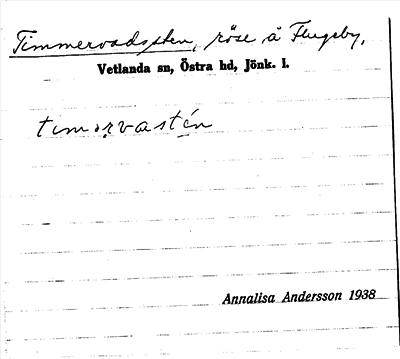 Timmervadssten, röse å Flugeby,
Vetlanda sn, Östra hd, Jönk. l.
timərvastén
Annalisa Andersson 1938